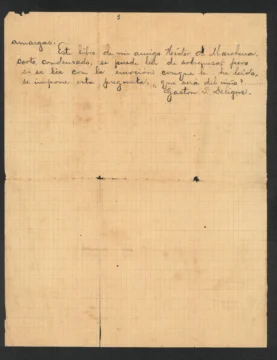 5
amargas.
Este libro de mi amigo Heriberto de Marchena
corto, condensado, se puede leer de sobremesa; pero
si se lee con la emoción conque lo he leído,
se impone esta pregunta: ¿que será del niño?
Gaston F. Deligne.